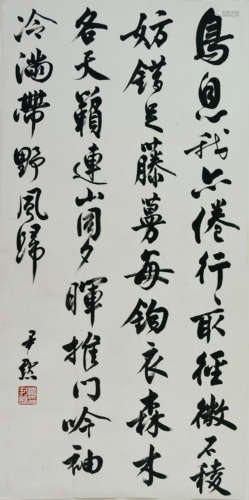 鳥息我亦倦行取徑微石稜
妨錯足藤蔓每鉤衣森木
各天籟連山同夕暉推門吟袖
冷滿帶野風歸
尹默